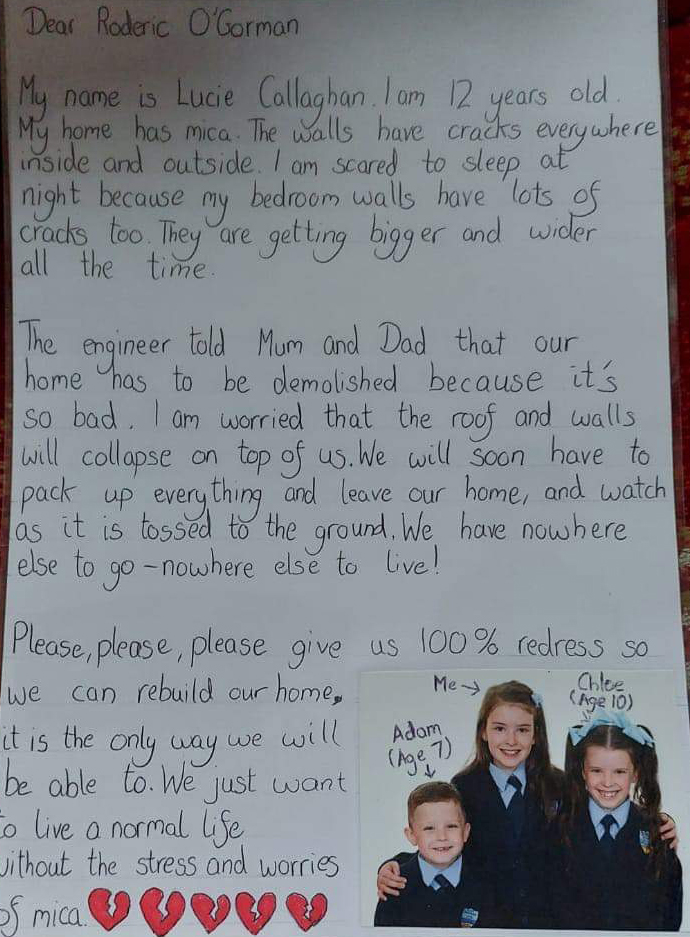 Dear Roderic O'Gorman
My name is Lucie Callaghan. I am 12 years old.
My home has mica. The walls have cracks everywhere
inside and outside. I am scared to sleep at
night because my bedroom walls have lots of
cracks too. They are getting bigger and wider
all the time.
The engineer told Mum and Dad that our
home has to be demolished because it's
so bad. I am worried that the roof and walls
will collapse on top of us. We will soon have to
pack up everything and leave our home, and watch
as it is tossed to the ground. We have nowhere
else to go - nowhere else to live!
Please, please, please give us 100% redress so
we can rebuild our home,
it is the only way we will
be able to. We just want
to live a normal life
without the stress and worries
of mica.
Me
Chloe
(Age 10)
Adam
(Age 7)